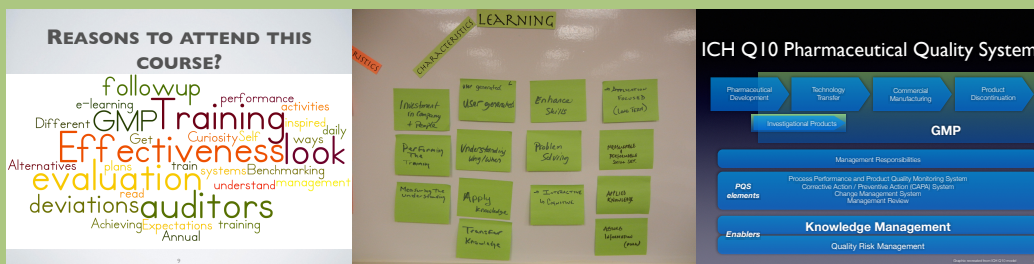 REASONS TO ATTEND THIS
COURSE?
followup
e-learning
performance
activities
Different
GMP
Training
inspired
Get
Curiosity
Self
ways
daily
Effectiveness
look
Alternatives
plans
train
systems
Benchmarking
evaluation
read
understand
management
deviations
auditors
Achieving
Expectations
training
Annual
LEARNING
CHARACTERISTICS
Investment
in Company
+ People
User generated
User generated
Enhance
Skills
Performing
The
Training
Understanding
Why/When
Problem
Solving
Measuring The
Understanding
Apply
Knowledge
Applied
Knowledge
Transfer
Knowledge
ICH Q10 Pharmaceutical Quality System
Pharmaceutical
Development
Technology
Transfer
Commercial
Manufacturing
Product
Discontinuation
Investigational Products
GMP
Management Responsibilities
PQS
elements
Process Performance and Product Quality Monitoring System
Corrective Action / Preventive Action (CAPA) System
Change Management System
Management Review
Enablers
Knowledge Management
Quality Risk Management